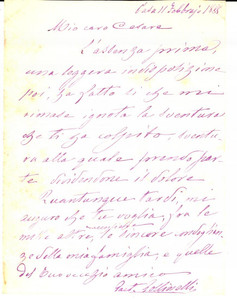 Casa 11 Febbrajo 188
Mio caro Cesare
L'assenza prima,
una leggera indisposizione
poi, ha fatto sì che mi
rimase ignota la sventura
che ti ha colpito, sventu
ra alla quale prendo par
te dividendone il dolore
Quantunque tardi, mi
auguro che tu voglia, fra le
molte altre, le sincere condoglian
ze della mia famiglia e quelle
del tuo amico